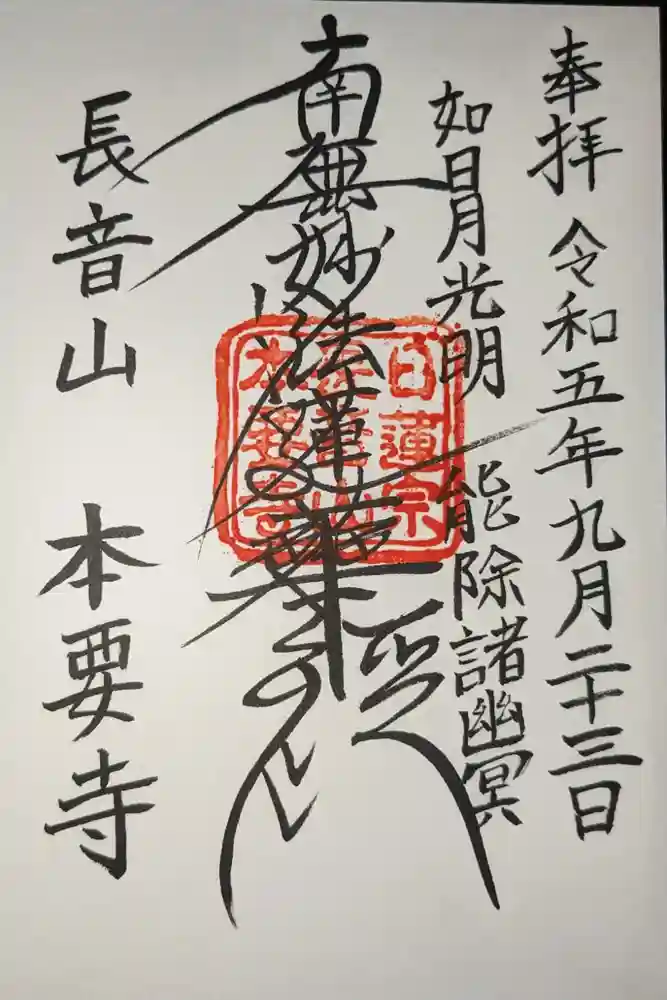 奉拝 令和五年九月二十三日
如日月光明 能除諸幽冥
南無妙法蓮華経
長音山 本要寺
日蓮宗
長音山
本要寺